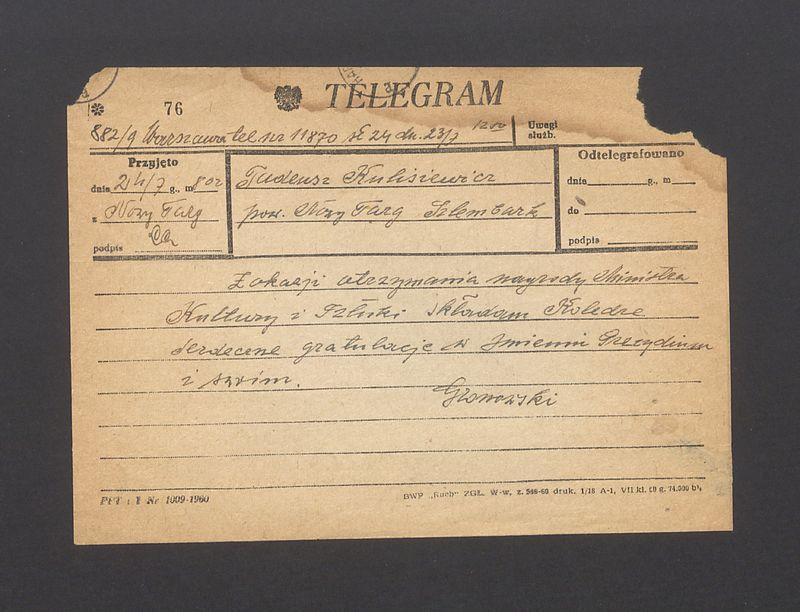 76 TELEGRAM
882/9 Warszawa tel nr 11870 sł 24 dn. 23/7 12 00 Uwagi służb.
Przyjęto
dnia 24/7 g., m 8 02
z Nowy Targ
podpis
Tadeusz Kulisiewicz
pow. Nowy Targ Szlembark
Odtelegrafowano
dnia g., m
do
podpis
Z okazji otrzymania nagrody Ministra
Kultury i Sztuki składam Koledze
serdeczne gratulacje w imieniu Prezydium
i swoim.
Gronowski
PPT : T Nr 1009-1960
BWP „Ruch" ZGŁ. W-w, z. 546-60 druk. 1/18 A-1, VII kl. 60 g. 74.000 bl.